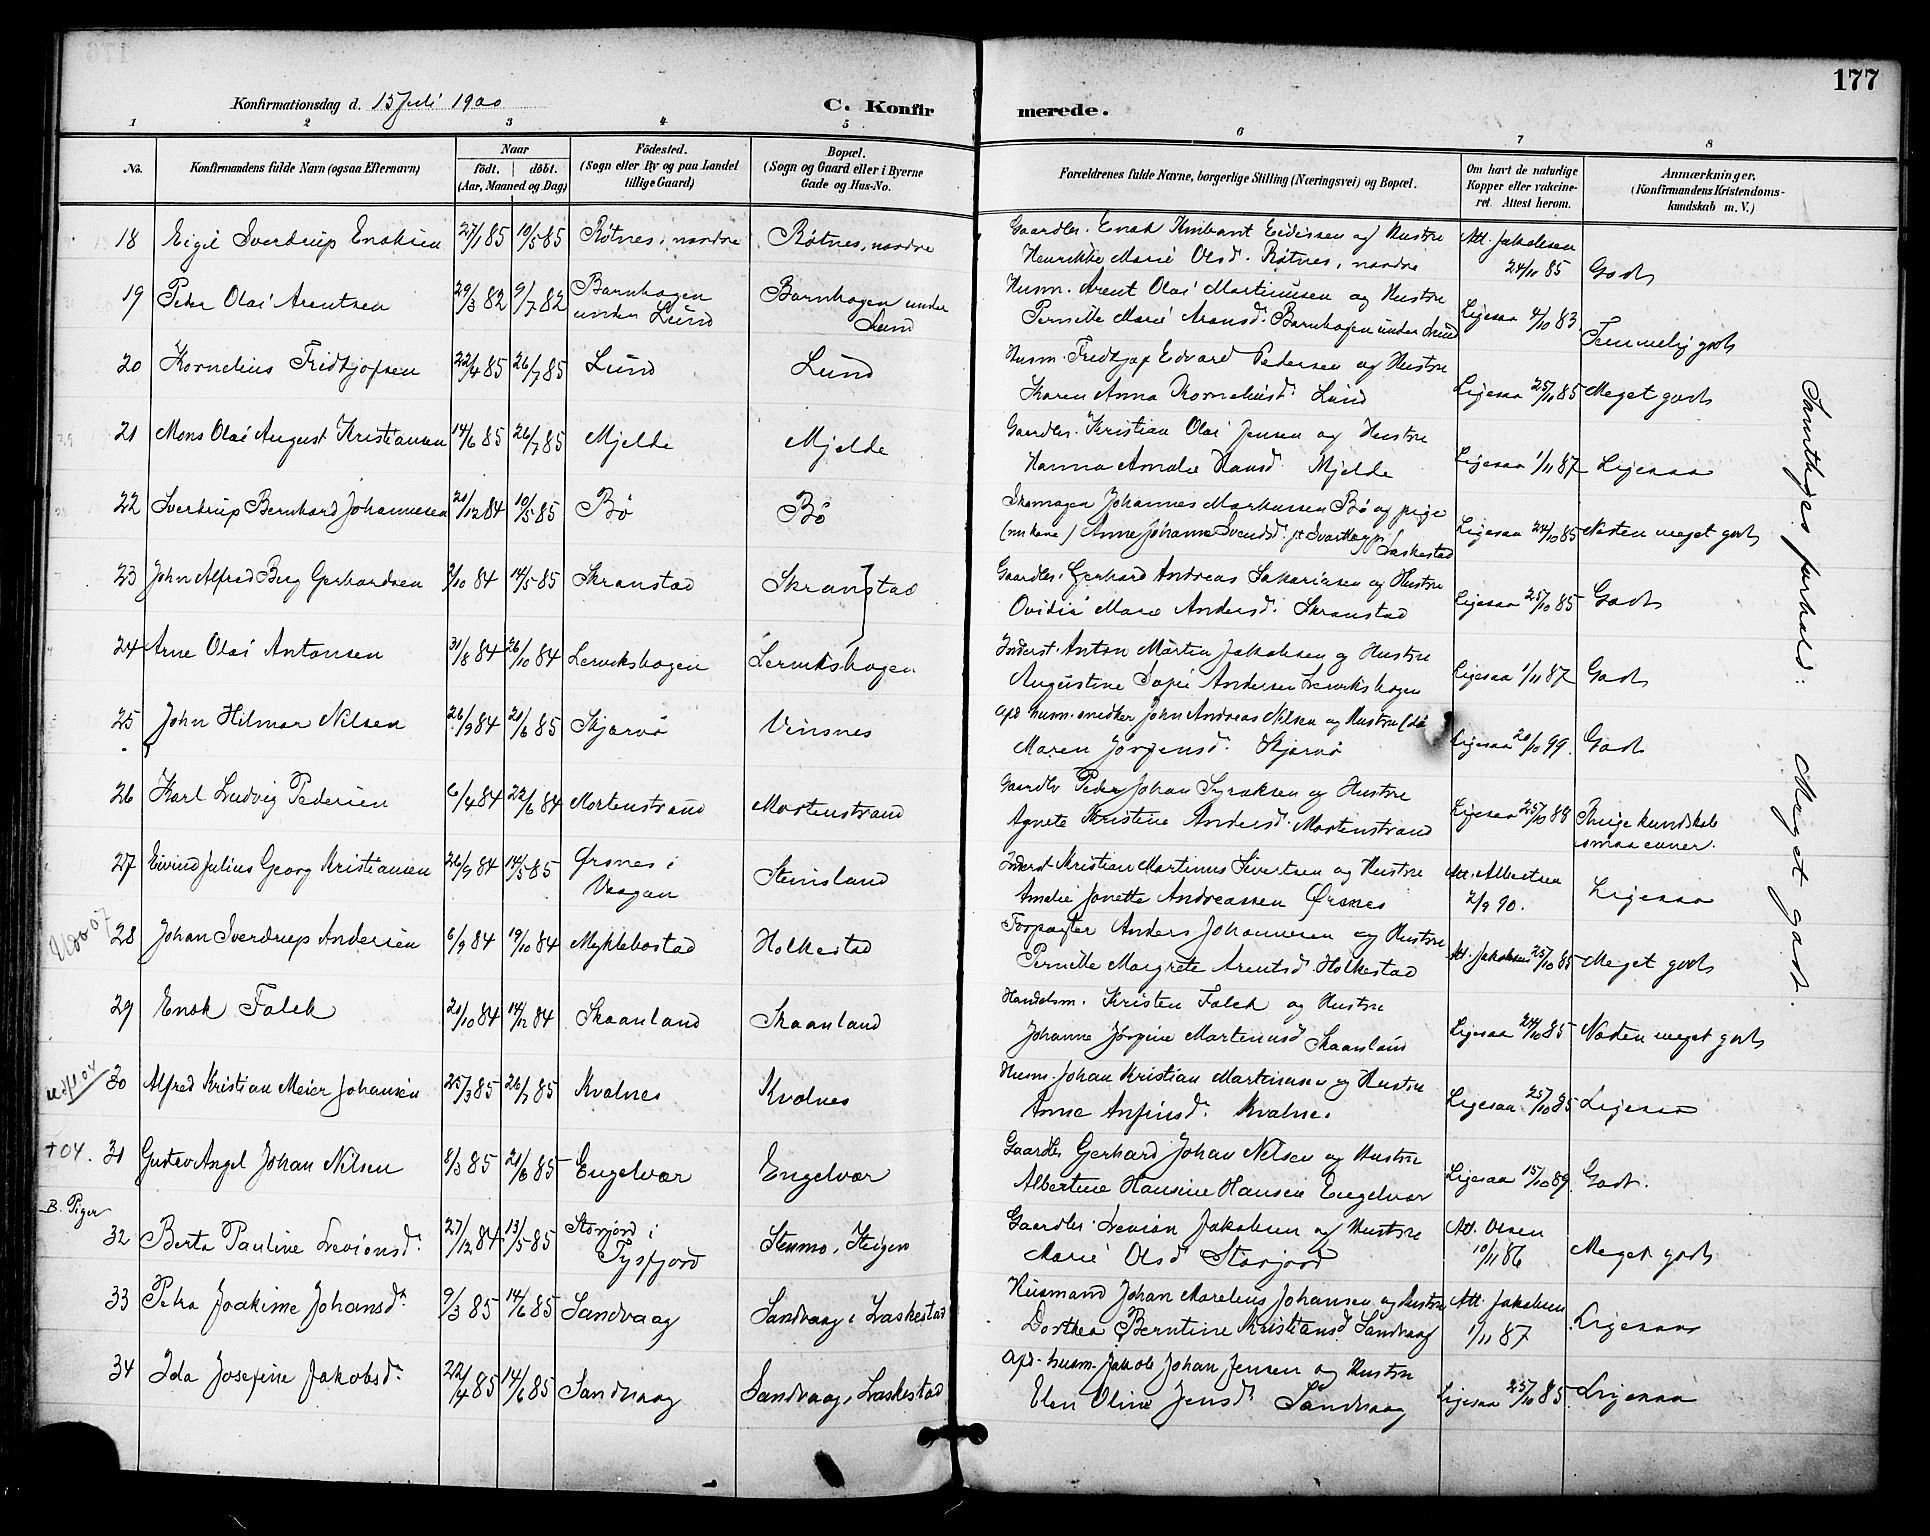 177
Konfirmationsdag d. 15 Juli 1900
C. Konfirmerede.
1 2 3 4 5 6 7 8
No.
Konfirmandens fulde Navn (ogsaa Efternavn)
Naar
født. døbt.
(Aar, Maaned og Dag)
Fødested.
(Sogn eller By og paa Landet
tillige Gaard)
Bopæl.
(Sogn og Gaard eller i Byerne
Gade og Hus-No.
Forældrenes fulde Navne, borgerlige Stilling (Næringsvei) og Bopæl.
Om havt de naturlige
Kopper eller vakcine-
ret. Attest herom.
Anmærkninger,
(Konfirmandens Kristendoms-
kundskab m. V.)
18 Eigil Sverdrup Enoksen 27/1 85 10/5 85 Røtnes, nordre Røtnes, nordre Gaardbr. Enok Eidissen og Hustru Att. Jakobsen
Henrikke Marie Olsd. Røtnes, nordre 24/10 85 Godt
19 Peter Olai Arentsen 29/3 82 9/7 82 Barnhagen Barnhagen under Husm. Arent Olai Martinusen og Hustru
under Lund Lund Pernille Marie Aronsd. Barnhagen under Lund Ligesaa 4/10 83 Temmelig godt
20 Kornelius Fridtjofsen 22/4 85 26/7 85 Lund Lund Husm. Fridtjof Edvard Pedersen og Hustru
Karen Anna Korneliusd. Lund Ligesaa 25/10 85 Meget godt
21 Mons Olai August Kristiansen 14/6 85 26/7 85 Mjelde Mjelde Gaardbr. Kristian Olai Jensen og Hustru
Hanna Amalie Hansd. Mjelde Ligesaa 1/11 87 Ligesaa
22 Sverdrup Bernhard Johannesen 21/12 84 10/5 85 Bø Bø Skomager Johannes Markussen Bø og pige
(nu kone) Anne Johanna Svendsd. Laskestad Ligesaa 24/10 85 Næsten meget godt
23 John Alfred Berg Gerhardsen 2/10 84 14/5 85 Skranstad Skranstad Gaardbr. Gerhard Andreas Sakariasen og Hustru
Ovidia Marie Andersd. Skranstad Ligesaa 25/10 85 Godt
24 Arne Olai Antonsen 31/8 84 26/10 84 Lervikshagen Lervikshagen Inderst. Anton Martin Jakobsen og Hustru
Augustine Sofie Andersen Lervikshagen Ligesaa 1/11 87 Godt
25 John Hilmar Nilsen 26/9 84 21/6 85 Skjærvø Vinsnes Afd. husm. snedker John Andreas Nilsen og Hustru
Maren Jørgensd. Skjærvø Ligesaa 20/10 99. Godt
26 Karl Ludvig Pedersen 6/4 84 22/6 84 Mortenstrand Mortenstrand Gaardbr Peder Johan Syraksen og Hustru
Agnete Kristine Andersd. Mortenstrand Ligesaa 25/10 88 Ringe kundskab
smaa evner.
27 Eivind Julius Georg Kristiansen 26/9 84 14/5 85 Ørsnes i Steinsland Inderst. Kristian Martinus Sivertsen og Hustru Att. Albertsen
Vaagan Amalie Jonette Andreassen Ørsnes 2/9 90. Ligesaa
28 Johan Sverdrup Andersen 6/9 84 19/10 84 Myklebostad Holkestad Forpagter Anders Johannesen og Hustru
Pernille Margrete Arentsd. Holkestad Att. Jakobsen 25/10 85 Meget godt
29 Enok Falck 21/10 84 14/12 84 Skaanland Skaanland Handelsm. Kristen Falck og Hustru
Johanne Jørgine Martinusd Skaanland Ligesaa 24/10 85 Næsten meget godt
30 Alfred Kristian Meier Johansen 25/3 85 26/7 85 Kvalnes Kvalnes Husm. Johan Kristian Martinusen og Hustru
Anne Anfinsd. Kvalnes Ligesaa 25/10 85 Ligesaa
+ 04. 31 Gustav Angel Johan Nilsen 8/3 85 21/6 85 Engelvær Engelvær Gaardbr Gerhard Johan Nilsen og Hustru
Albertine Hansine Hansen Engelvær Ligesaa 15/10 89. Godt.
B. Piger
32 Berta Pauline Levionsd. 27/12 84 13/5 85 Storjord i Stenmo, Steigen Gaardbr. Levion Jakobsen og Hustru Att. Olsen
Tysfjord Marie Olsd Storjord 10/11 86 Meget godt
33 Petra Joakime Johansdr. 9/3 85 14/6 85 Sandvaag Sandvaag, Laskestad Husmand Johan Marelius Johansen og Hustru Att. Jakobsen
Dorthea Berntine Kristiansd Sandvaag 1/11 87 Ligesaa
34 Ida Josefine Jakobsdr. 22/4 85 14/6 85 Sandvaag Sandvaag, Laskestad Afd. husm. Jakob Johan Jensen og Hustru
Elen Oline Jensd. Sandvaag Ligesaa 25/10 85 Ligesaa
Samtliges forhold: Meget godt.